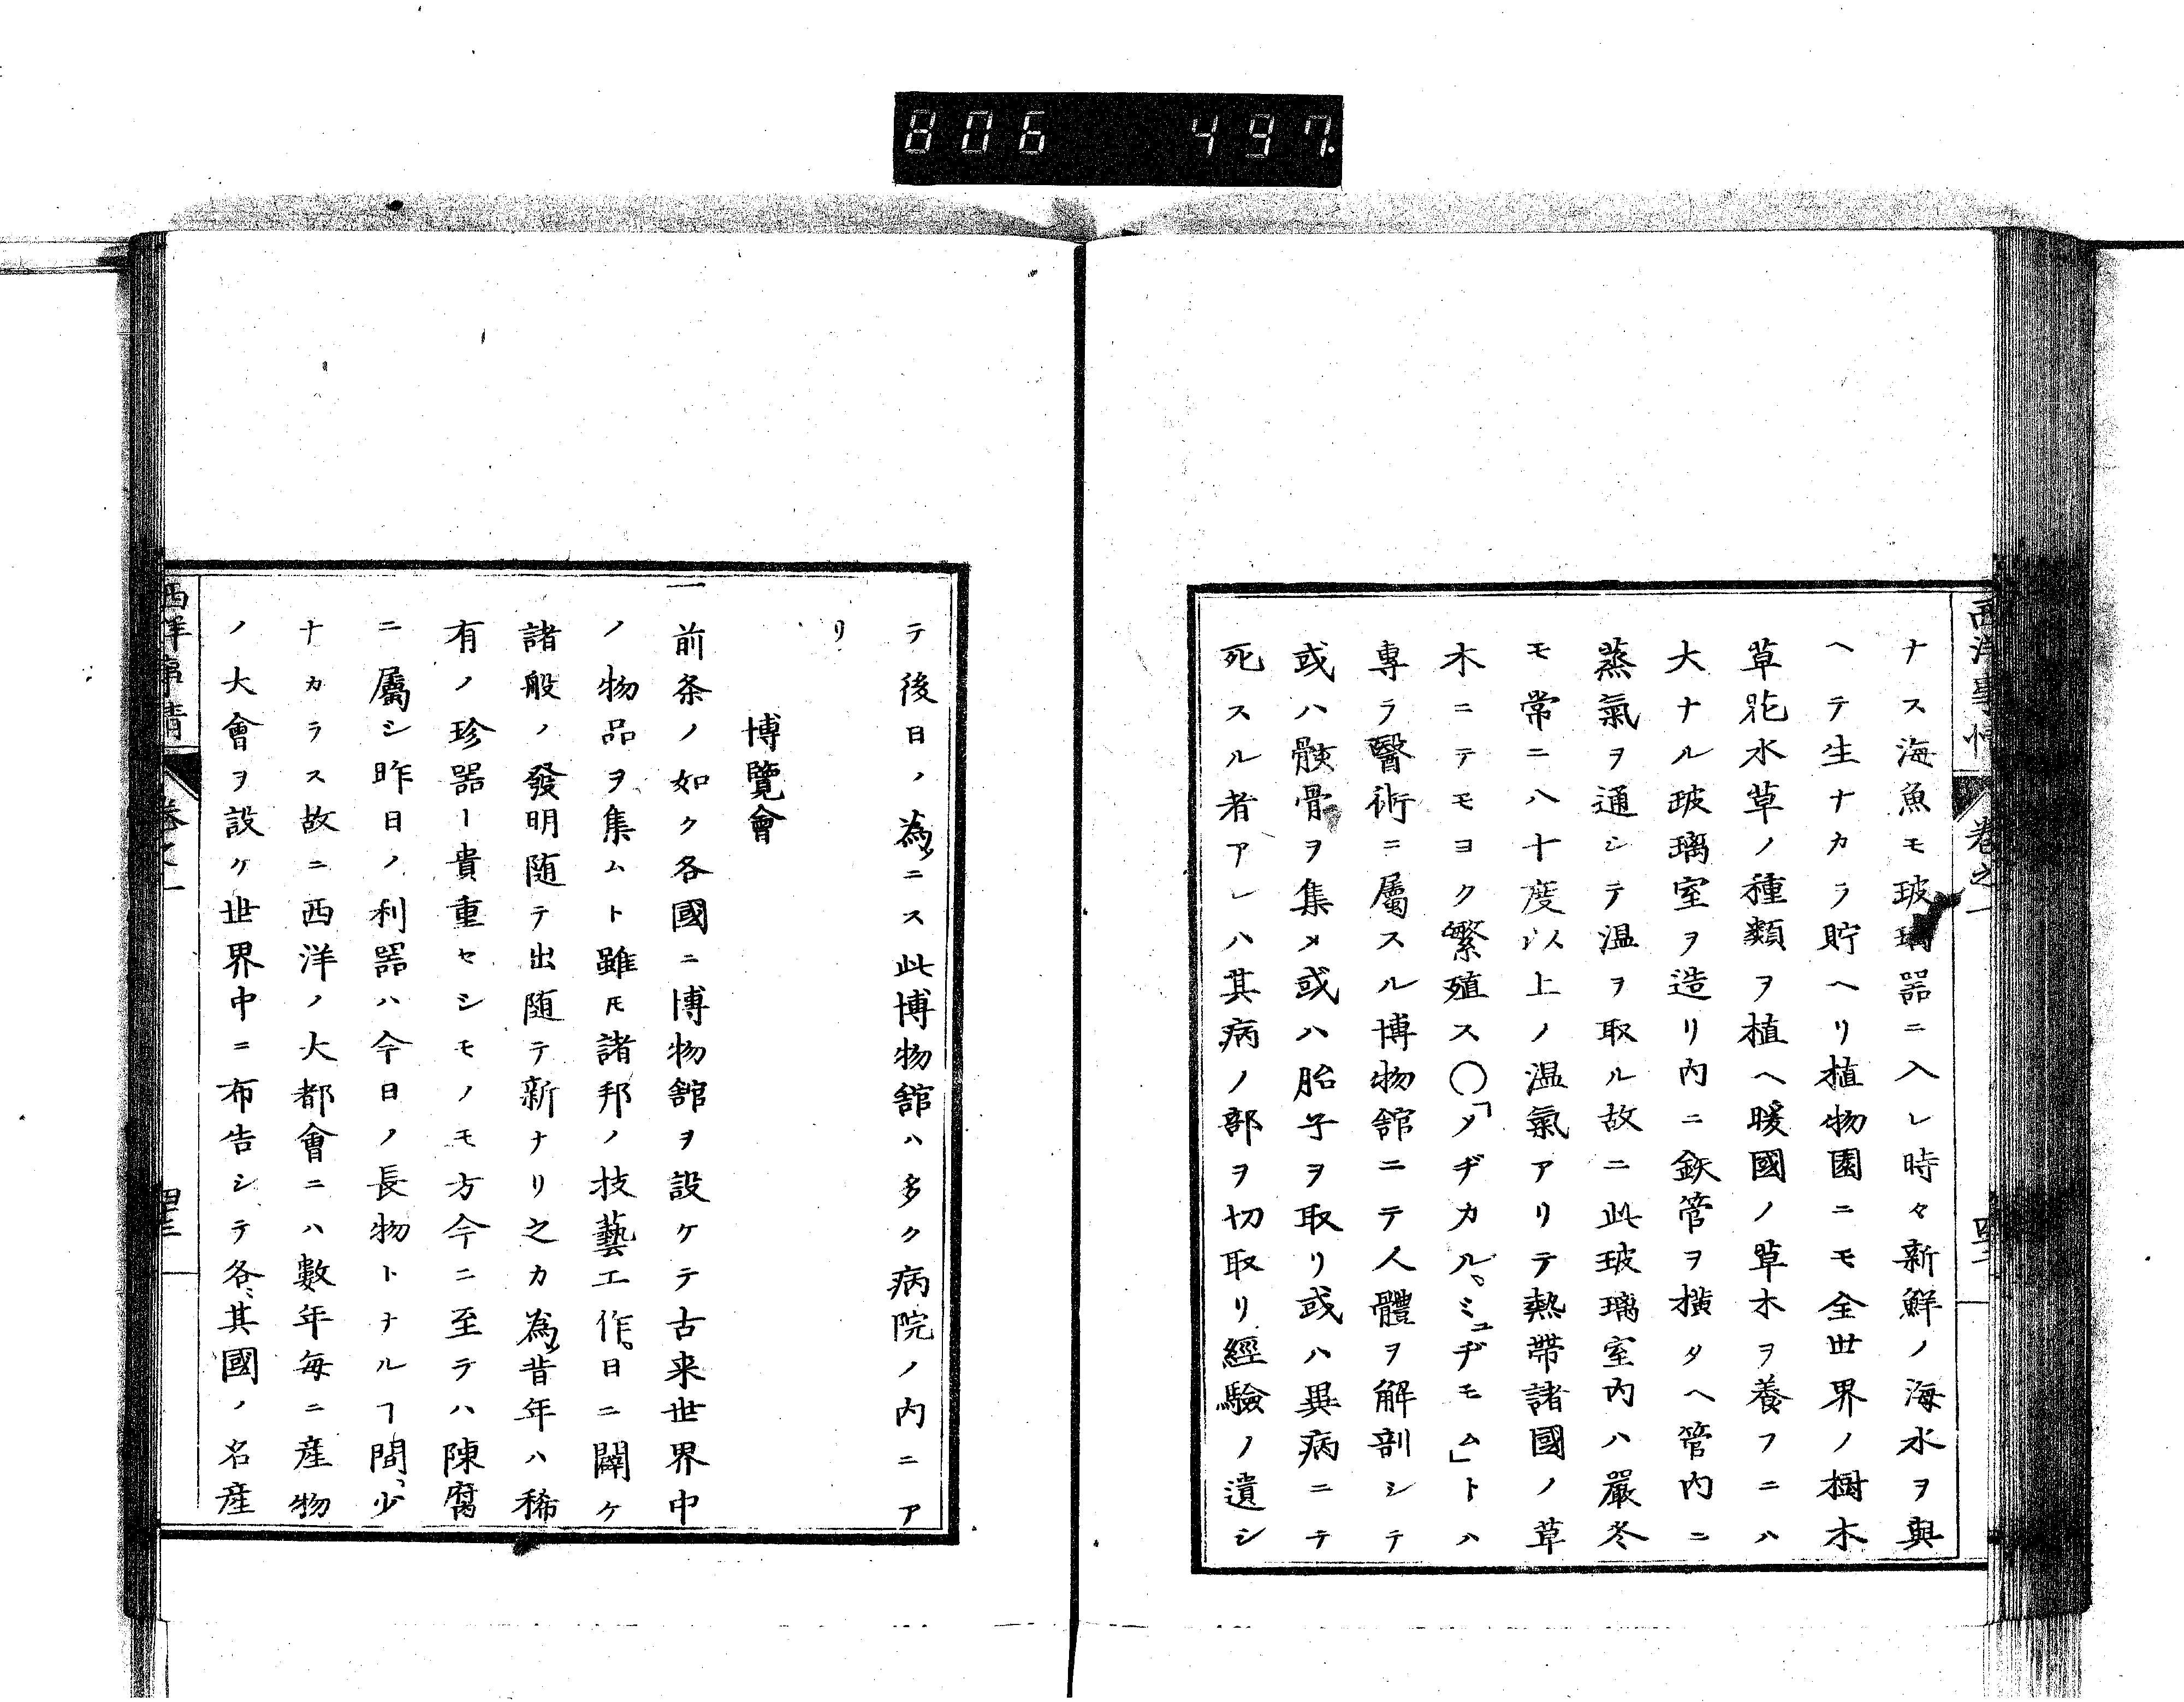 806 497.
西洋事情 卷之一
ナス海魚モ玻璃器ニ入レ時々新鮮ノ海水ヲ與
ヘテ生ナカラ貯ヘリ植物園ニモ全世界ノ樹木
草花水草ノ種類ヲ植ヘ暖國ノ草木ヲ養フニハ
大ナル玻璃室ヲ造リ内ニ鉄管ヲ横タヘ管内ニ
蒸氣ヲ通シテ温ヲ取ル故ニ此玻璃室内ハ嚴冬
モ常ニ八十度以上ノ温氣アリテ熱帶諸國ノ草
木ニテモヨク繁殖ス〇「メヂカル、ミュヂモム」トハ
專ラ醫術ニ屬スル博物館ニテ人體ヲ解剖シテ
或ハ骸骨ヲ集メ或ハ胎子ヲ取リ或ハ異病ニテ
死スル者アレハ其病ノ部ヲ切取リ經驗ノ遺シ
テ後日ノ為ニス此博物館ハ多ク病院ノ内ニア
リ
博覽會
一前条ノ如ク各國ニ博物館ヲ設ケテ古来世界中
ノ物品ヲ集ムト雖𪜈諸邦ノ技藝工作、日ニ闢ケ
諸般ノ發明随テ出随テ新ナリ之カ為、昔年ハ稀
有ノ珍器ー貴重セシモノモ方今ニ至テハ陳腐
ニ屬シ昨日ノ利器ハ今日ノ長物トナルヿ間、少
ナカラス故ニ西洋ノ大都會ニハ數年毎ニ産物
ノ大會ヲ設ケ世界中ニ布告シテ各、其國ノ名産
西洋事情 卷之一 四三